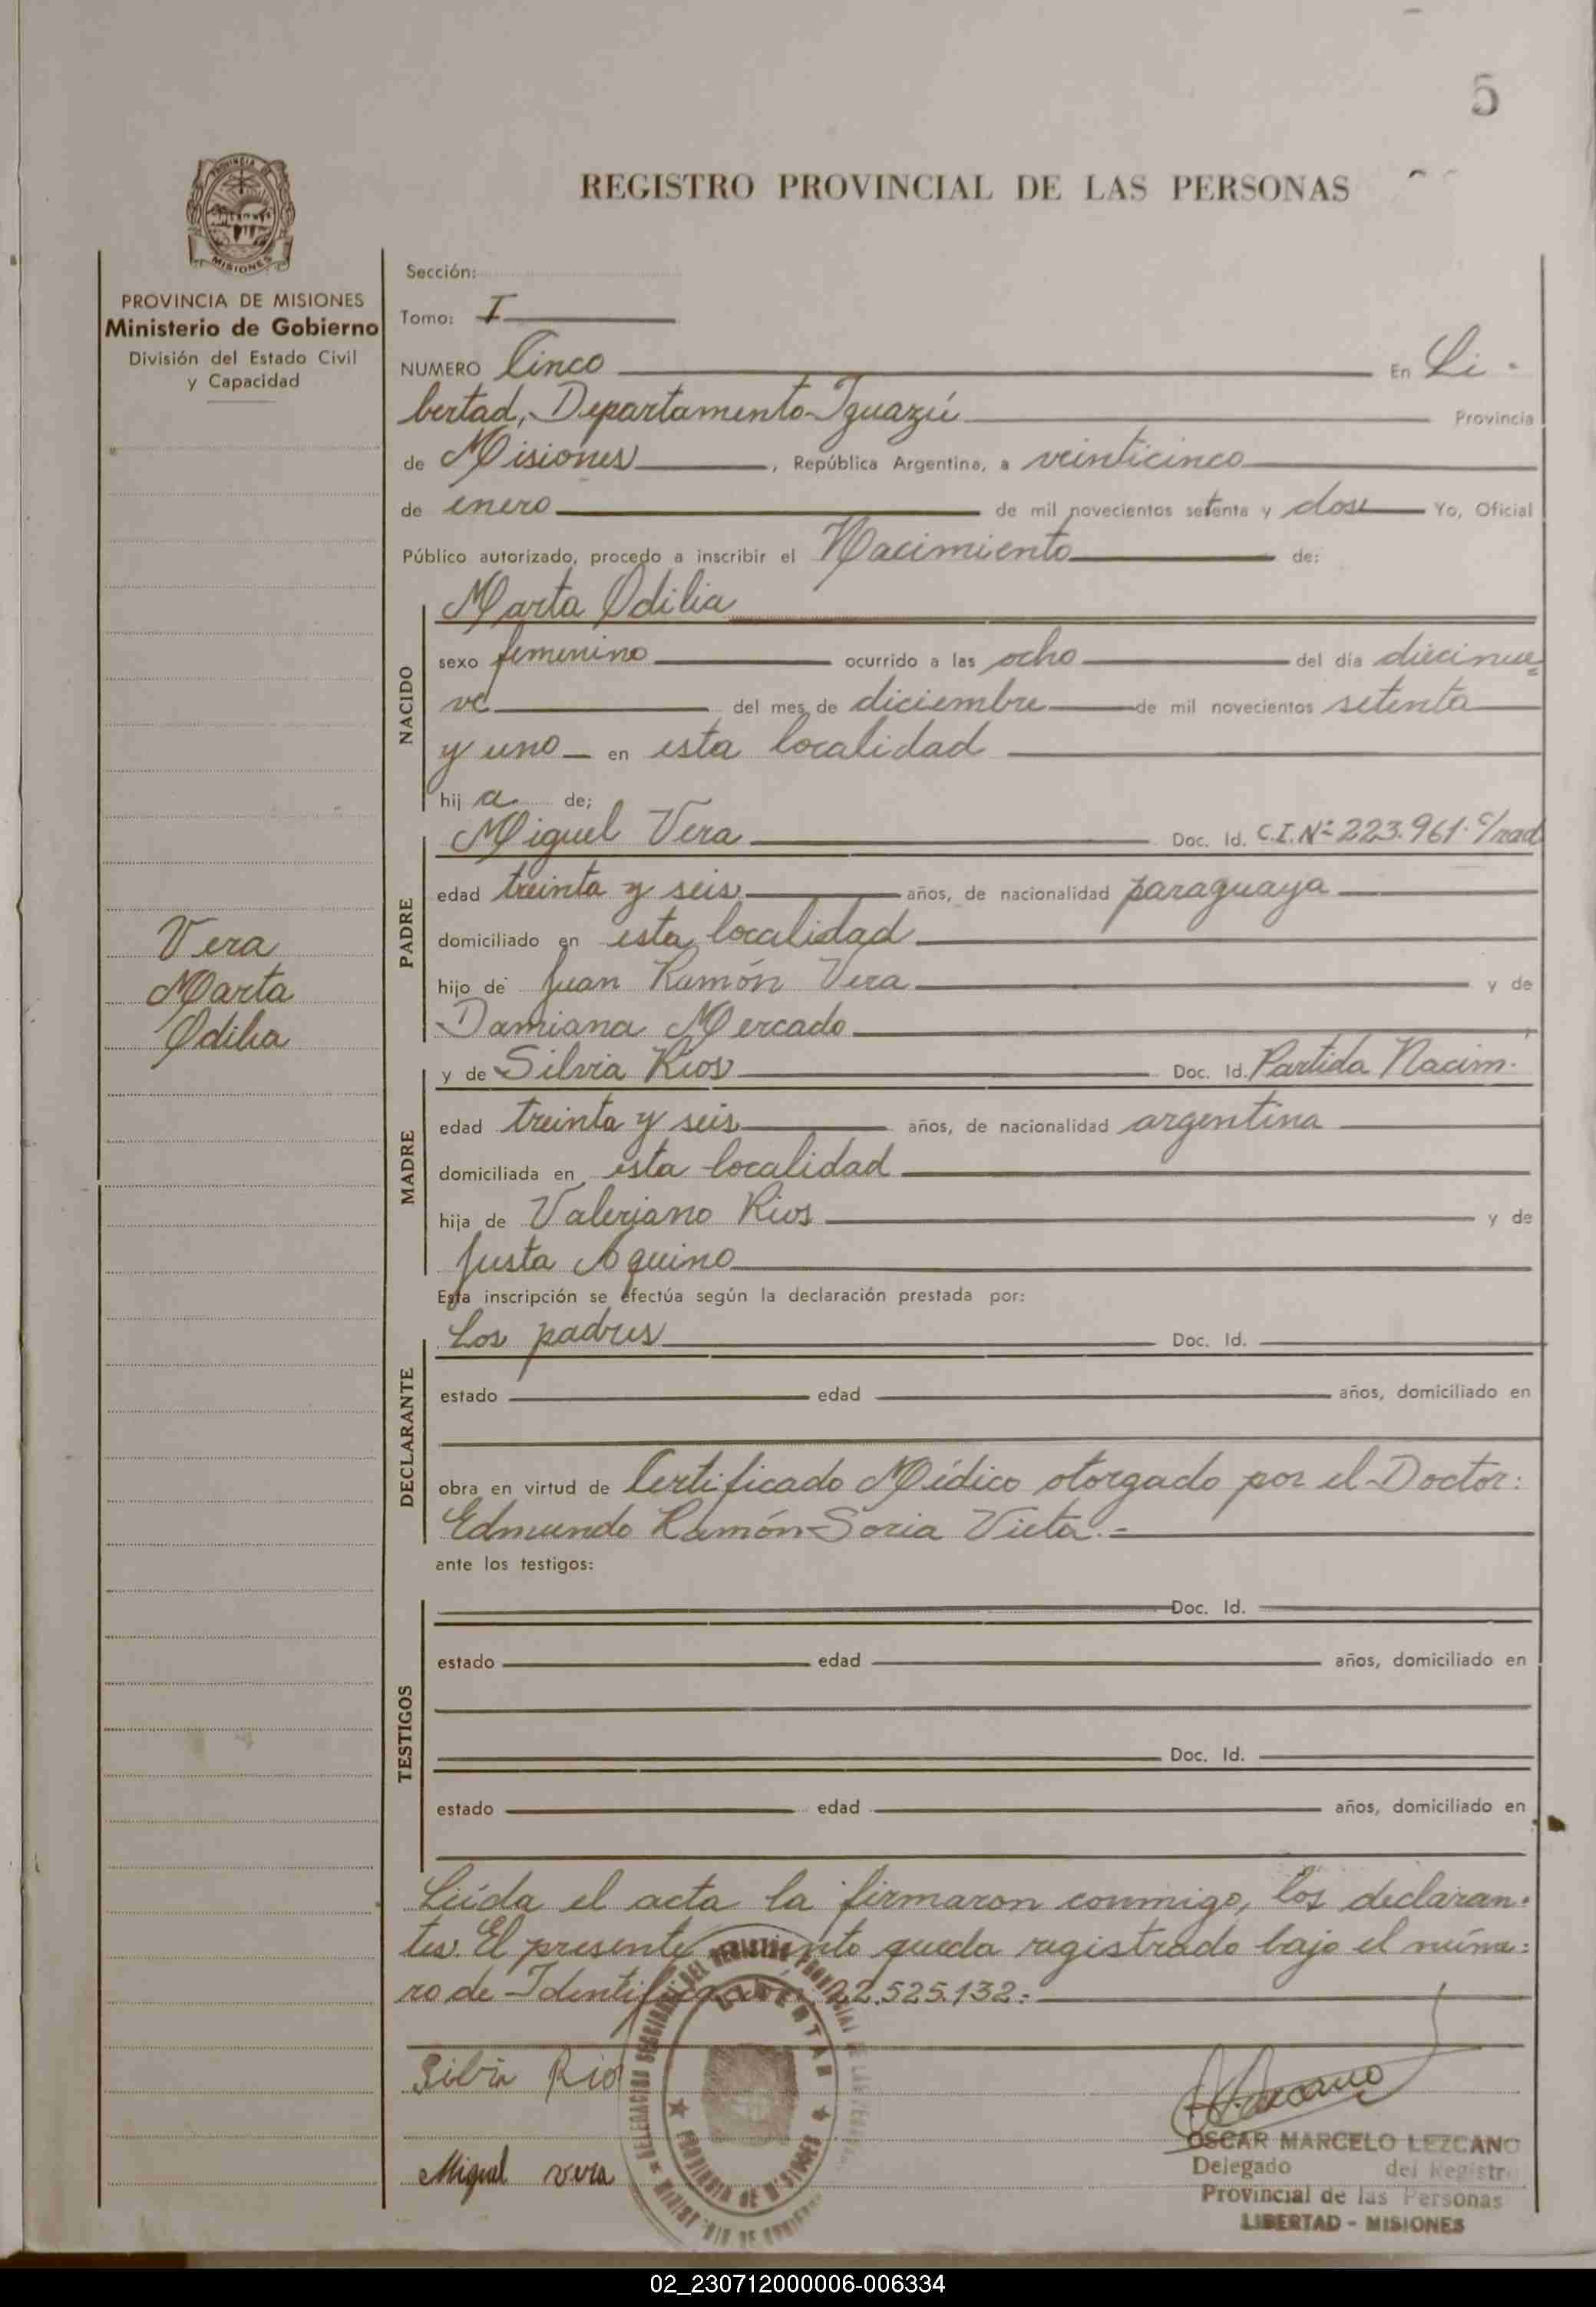 5
REGISTRO PROVINCIAL DE LAS PERSONAS
PROVINCIA DE MISIONES
Ministerio de Gobierno
División del Estado Civil
y Capacidad
Sección:
Tomo: I
NUMERO Cinco En Li-
bertad, Departamento Iguazú Provincia
de Misiones, República Argentina, a veinticinco
de enero de mil novecientos setenta y dos Yo, Oficial
Público autorizado, procedo a inscribir el Nacimiento de:
NACIDO
Marta Odilia
sexo femenino ocurrido a las ocho del día diecinue=
ve del mes de diciembre de mil novecientos setenta
y uno en esta localidad
hij a de;
PADRE
Miguel Vera Doc. Id. C.I. Nº 223.961. c/rad
edad treinta y seis años, de nacionalidad paraguaya
domiciliado en esta localidad
hijo de Juan Ramón Vera y de
Damiana Mercado
Vera
Marta
Odilia
MADRE
y de Silvia Rios Doc. Id. Partida Nacim.
edad treinta y seis años, de nacionalidad argentina
domiciliada en esta localidad
hija de Valeriano Rios y de
Justa Aquino
Esta inscripción se efectúa según la declaración prestada por:
DECLARANTE
Los padres Doc. Id.
estado edad años, domiciliado en
obra en virtud de Certificado Médico otorgado por el Doctor:
Edmundo Ramón Soria Vieta.=
ante los testigos:
TESTIGOS
Doc. Id.
estado edad años, domiciliado en
Doc. Id.
estado edad años, domiciliado en
Leída el acta la firmaron conmigo, los declaran-
tes. El presente queda registrado bajo el núme=
ro de Identificación 22.525.132.-
LIBERTAD
PROVINCIA DE MISIONES
Silvia Rio
Miguel vera
OSCAR MARCELO LEZCANO
Delegado del Registro
Provincial de las Personas
LIBERTAD - MISIONES
02_230712000006-006334